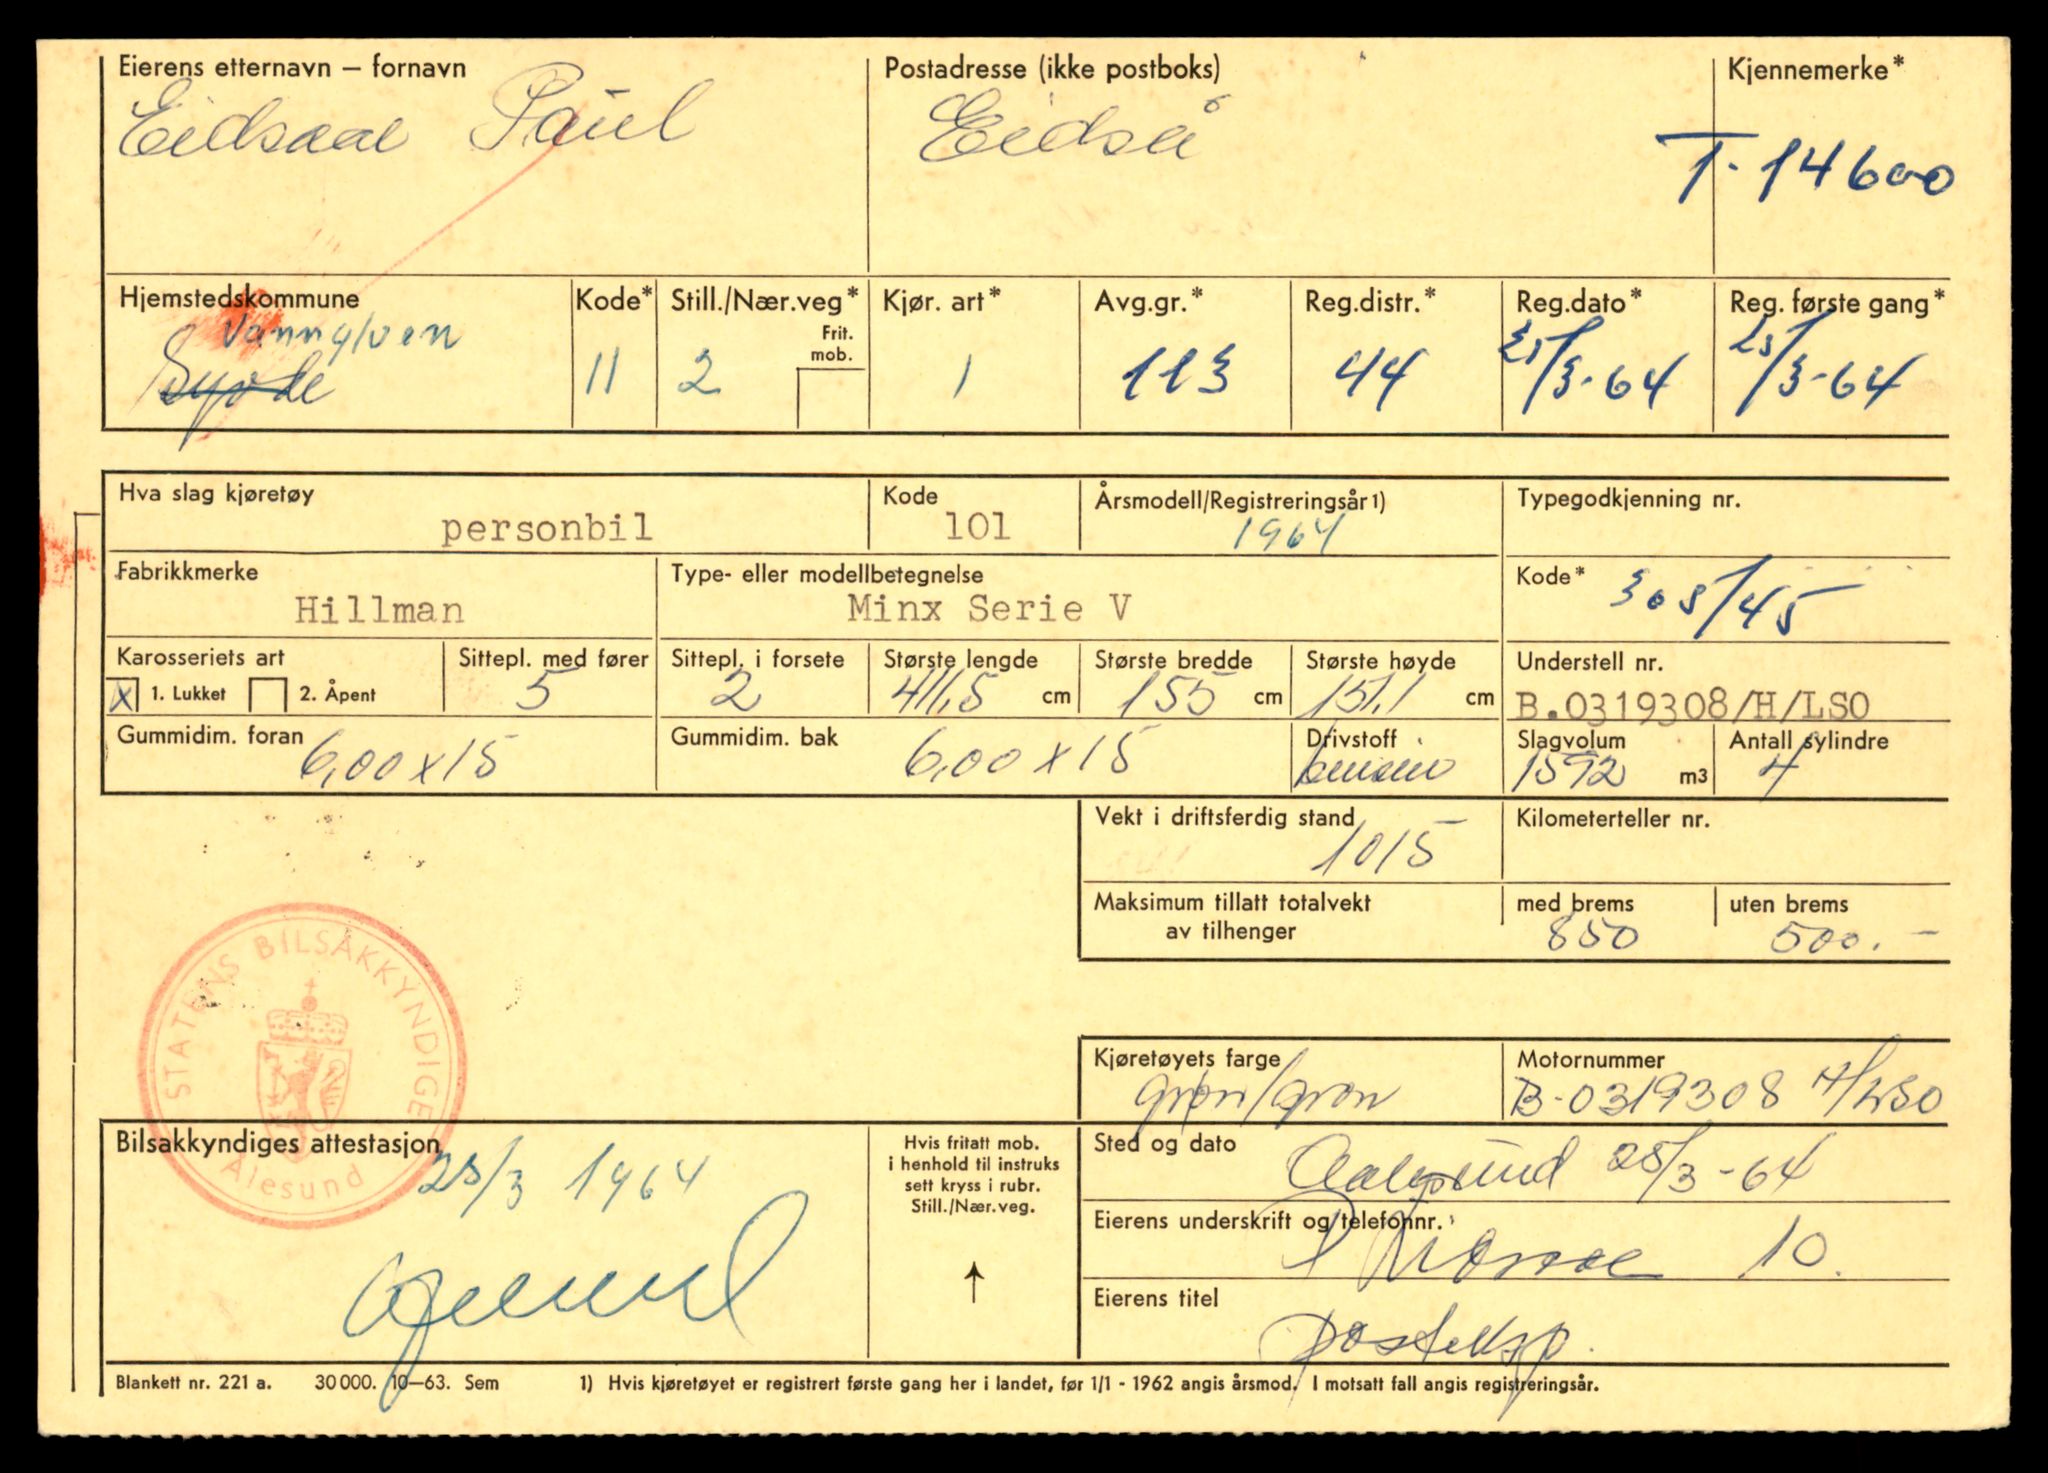 Eierens etternavn – fornavn Postadresse (ikke postboks) Kjennemerke*
Eidsaae Paul Eidså T-14600
Hjemstedskommune Kode* Still./Nær.veg* Kjør. art* Avg.gr.* Reg.distr.* Reg.dato* Reg. første gang*
Frit. mob.
Vannylven
Syvde 11 2 1 113 44 25/3-64 25/3-64
Hva slag kjøretøy Kode Årsmodell/Registreringsår 1) Typegodkjenning nr.
personbil 101 1964
Fabrikkmerke Type- eller modellbetegnelse Kode*
Hillman Minx Serie V 308/45
Karosseriets art Sittepl. med fører Sittepl. i forsete Største lengde Største bredde Største høyde Understell nr.
x 1. Lukket 2. Åpent 5 2 411,5 cm 155 cm 151,1 cm B.0319308/H/LSO
Gummidim. foran Gummidim. bak Drivstoff Slagvolum Antall sylindre
6,00 x 15 6,00 x 15 bensin 1592 m3 4
Vekt i driftsferdig stand Kilometerteller nr.
1015
Maksimum tillatt totalvekt med brems uten brems
av tilhenger 850 500.-
STATENS BILSAKKYNDIGE
Ålesund
Kjøretøyets farge Motornummer
grøn/grøn B-0319308 H/LSO
Bilsakkyndiges attestasjon
25/3 1964
Hvis fritatt mob.
i henhold til instruks
sett kryss i rubr.
Still./Nær.veg.
Sted og dato
Aalesund 25/3-64
Eierens underskrift og telefonnr.
P 10.
Eierens titel
posteksp.
Blankett nr. 221 a. 30 000. 10–63. Sem 1) Hvis kjøretøyet er registrert første gang her i landet, før 1/1 - 1962 angis årsmod. I motsatt fall angis registreringsår.